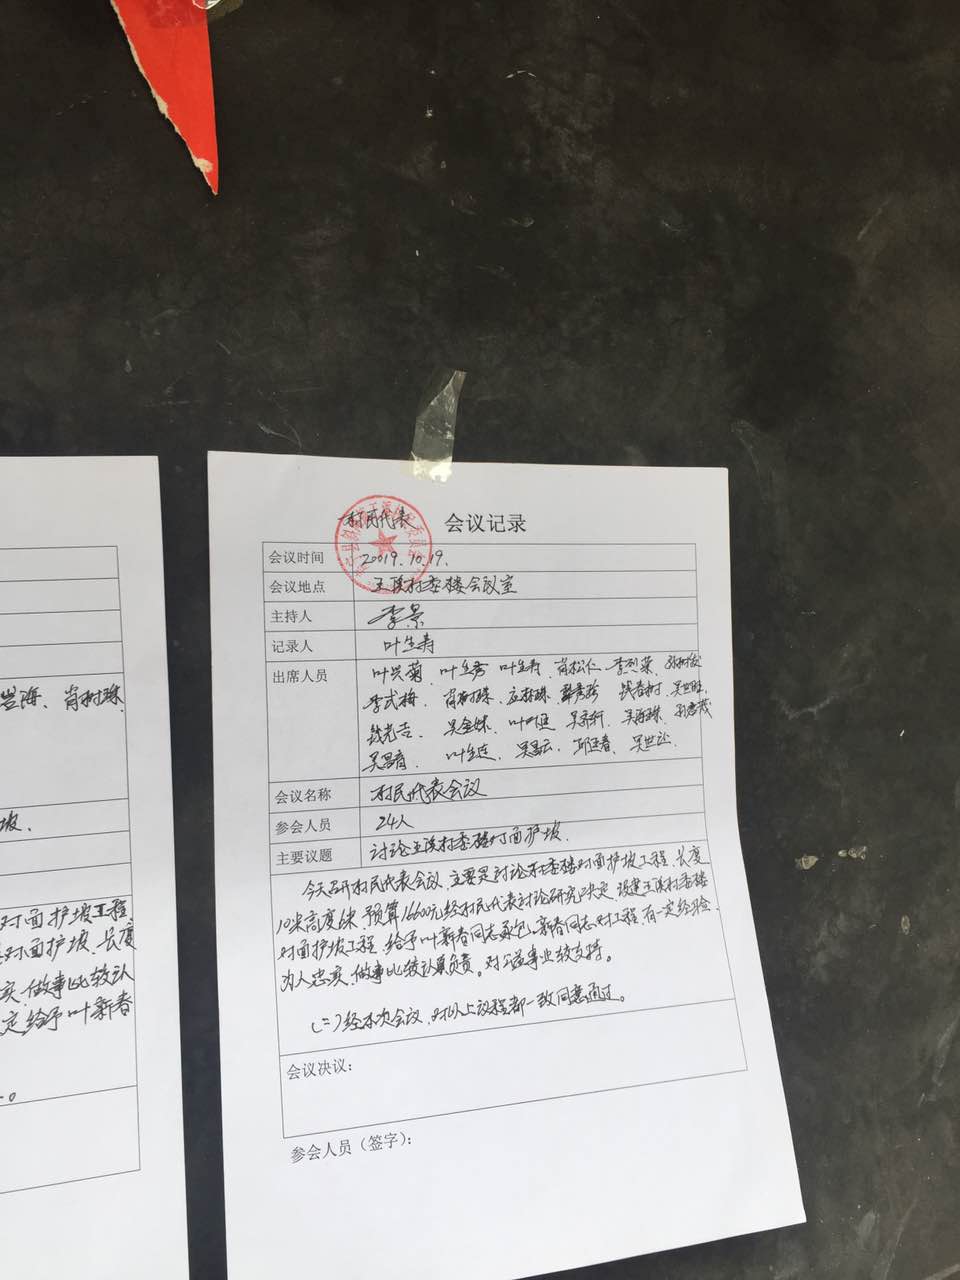 岩海、肖树珠
坡.
对面护坡工程
对面护坡、长度
实、做事比较认
定、给予叶新春
。
村民代表 会议记录
会议时间 20019.10.19.
会议地点 王溪村委楼会议室
主持人 李景
记录人 叶生寿
出席人员 叶兴菊、叶生秀 叶生寿、肖松仁、李烈荣、
李武梅、肖树珠、应林珠、
吴金妹、
吴昌育、叶生连、吴昌云、邱廷春、吴世让、
会议名称 村民代表会议
参会人员 24人
主要议题 讨论王溪村委楼对面护坡.
今天召开村民代表会议、主要是讨论村委楼对面护坡工程、长度
10米高度6米、预算16600元经村民代表讨论研究决定、设建王溪村委楼
对面护坡工程、给予叶新春同志承包、新春同志对工程、有一定经验、
为人忠实、做事比较认真负责。对公益事业较支持。
(二)经本次会议、对以上议程都一致同意通过。
会议决议：
参会人员（签字）：